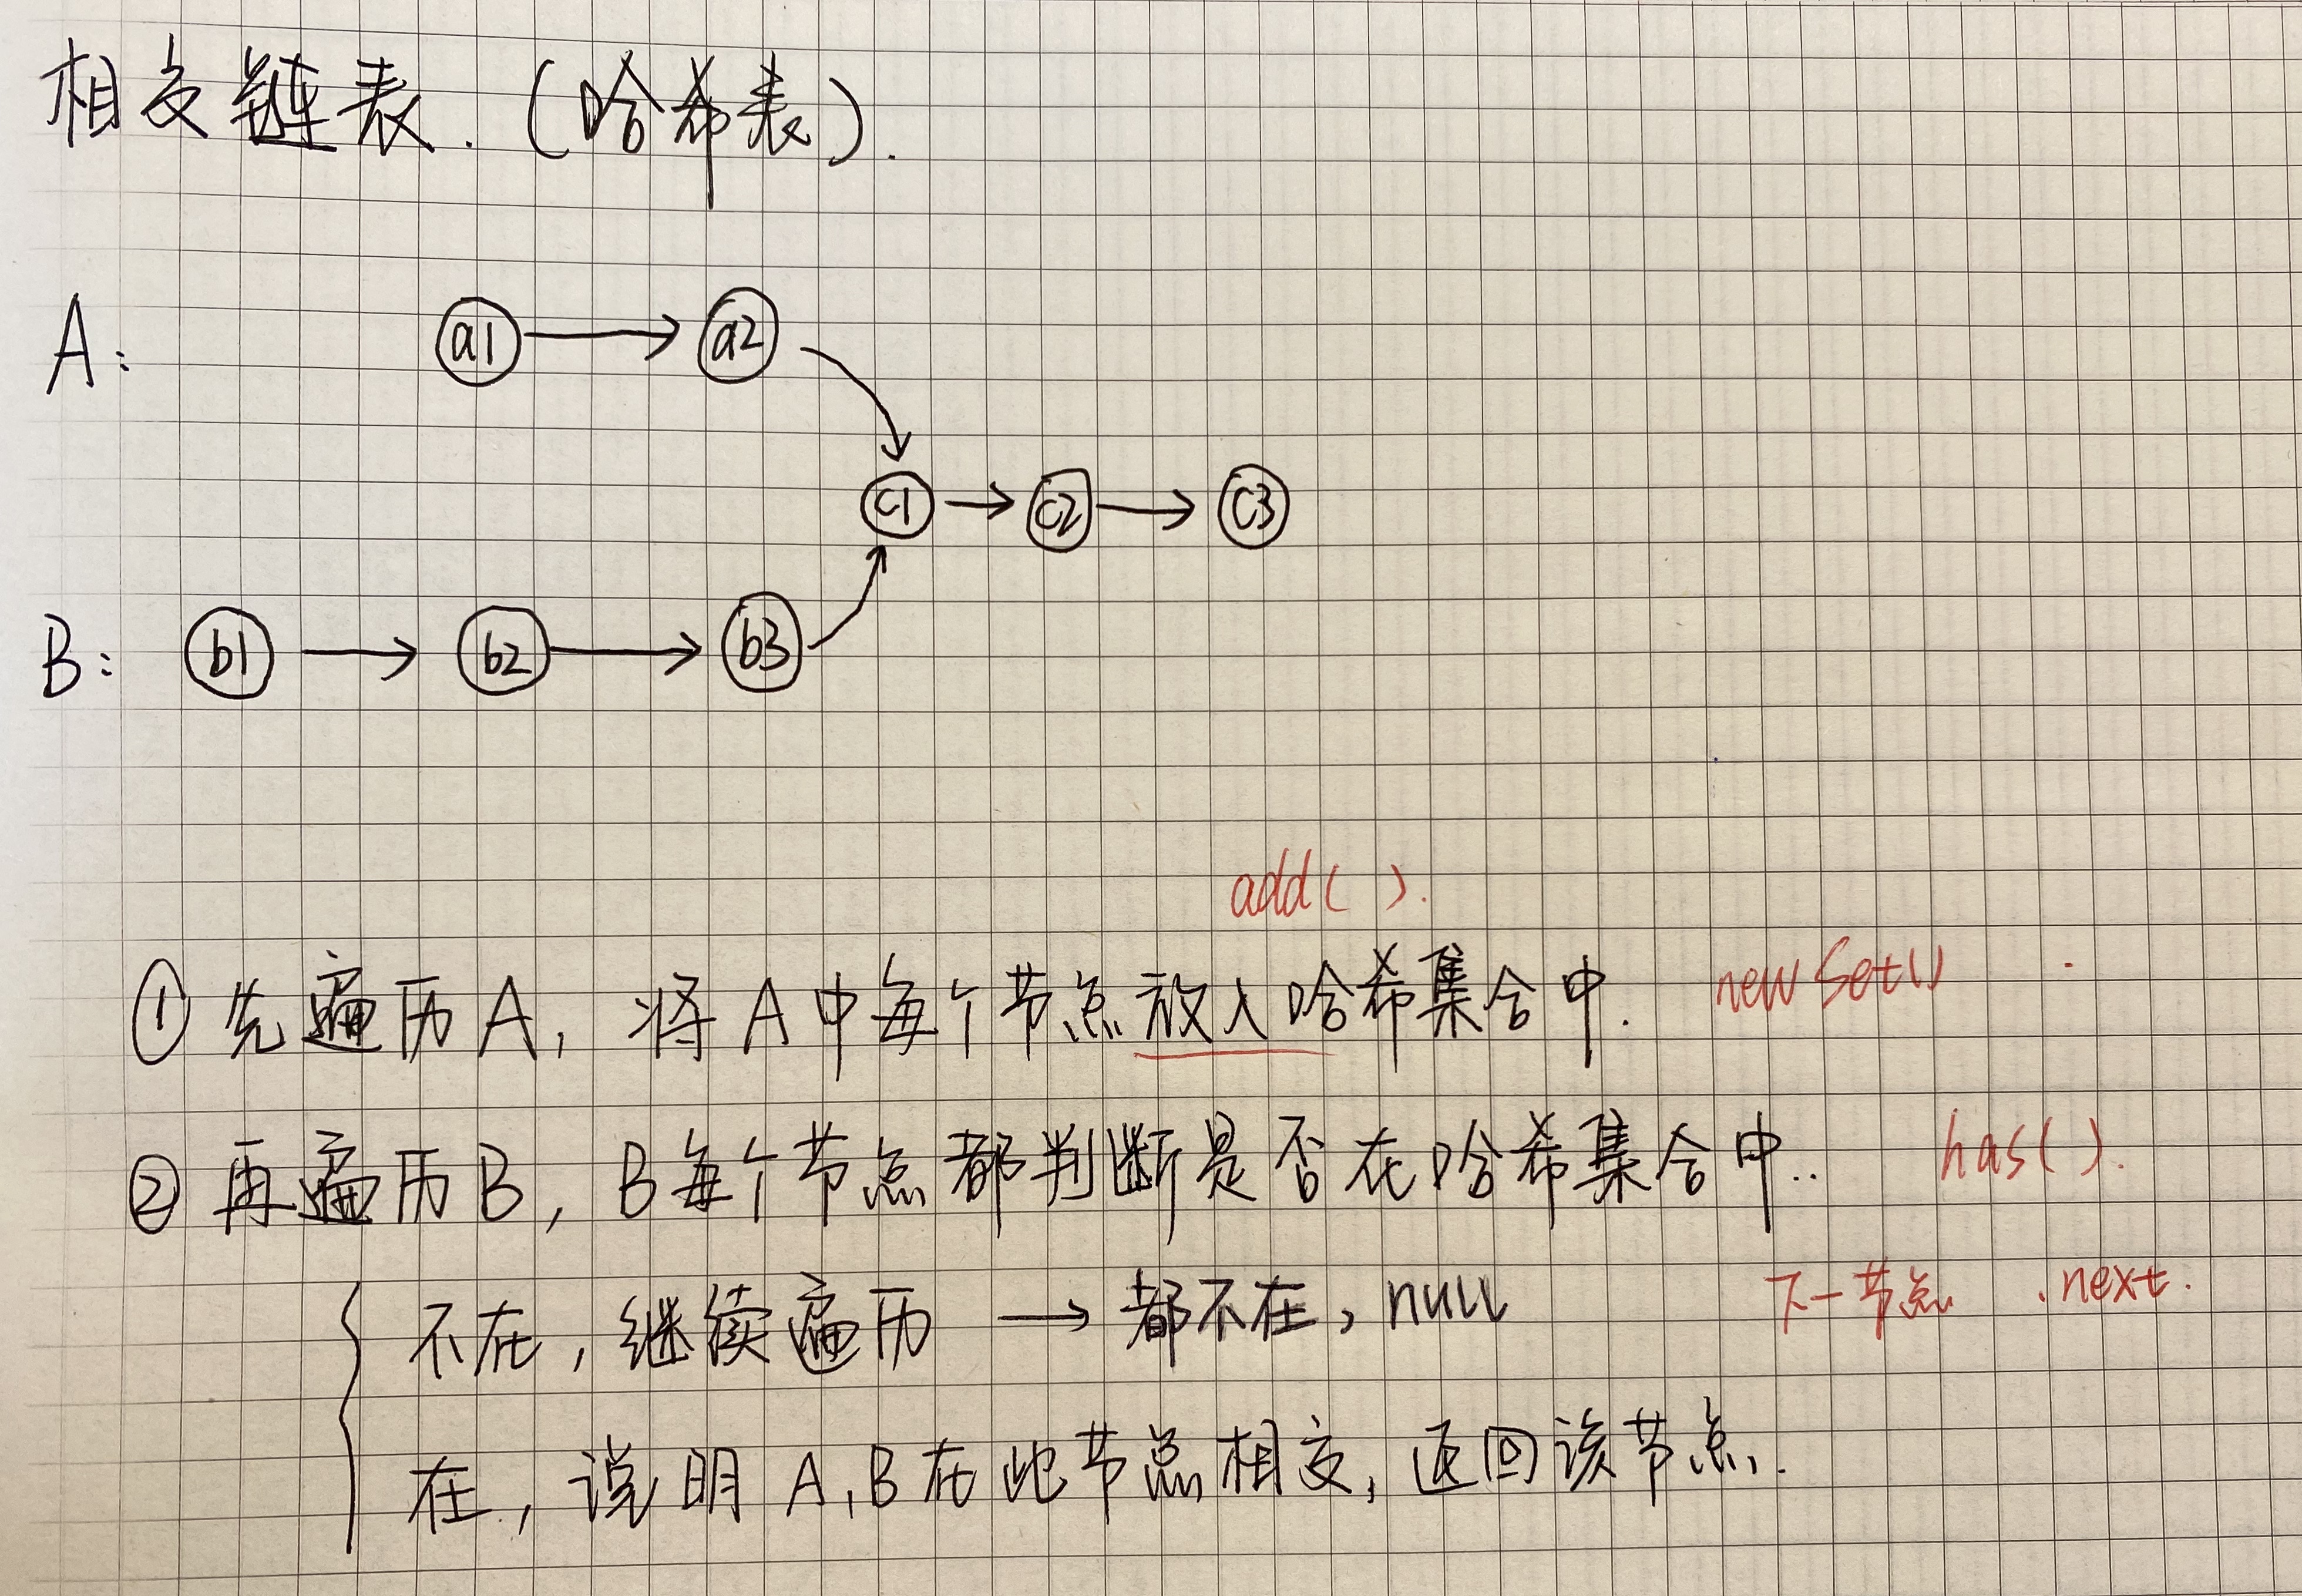 相交链表.(哈希表).
A: a1 a2
c1 c2 c3
B: b1 b2 b3
add( ).
① 先遍历A, 将A中每个节点放入哈希集合中. new Set()
② 再遍历B, B每个节点都判断是否在哈希集合中.. has( ).
不在, 继续遍历 → 都不在, null 下一节点 .next.
在, 说明 A,B在此节点相交, 返回该节点.